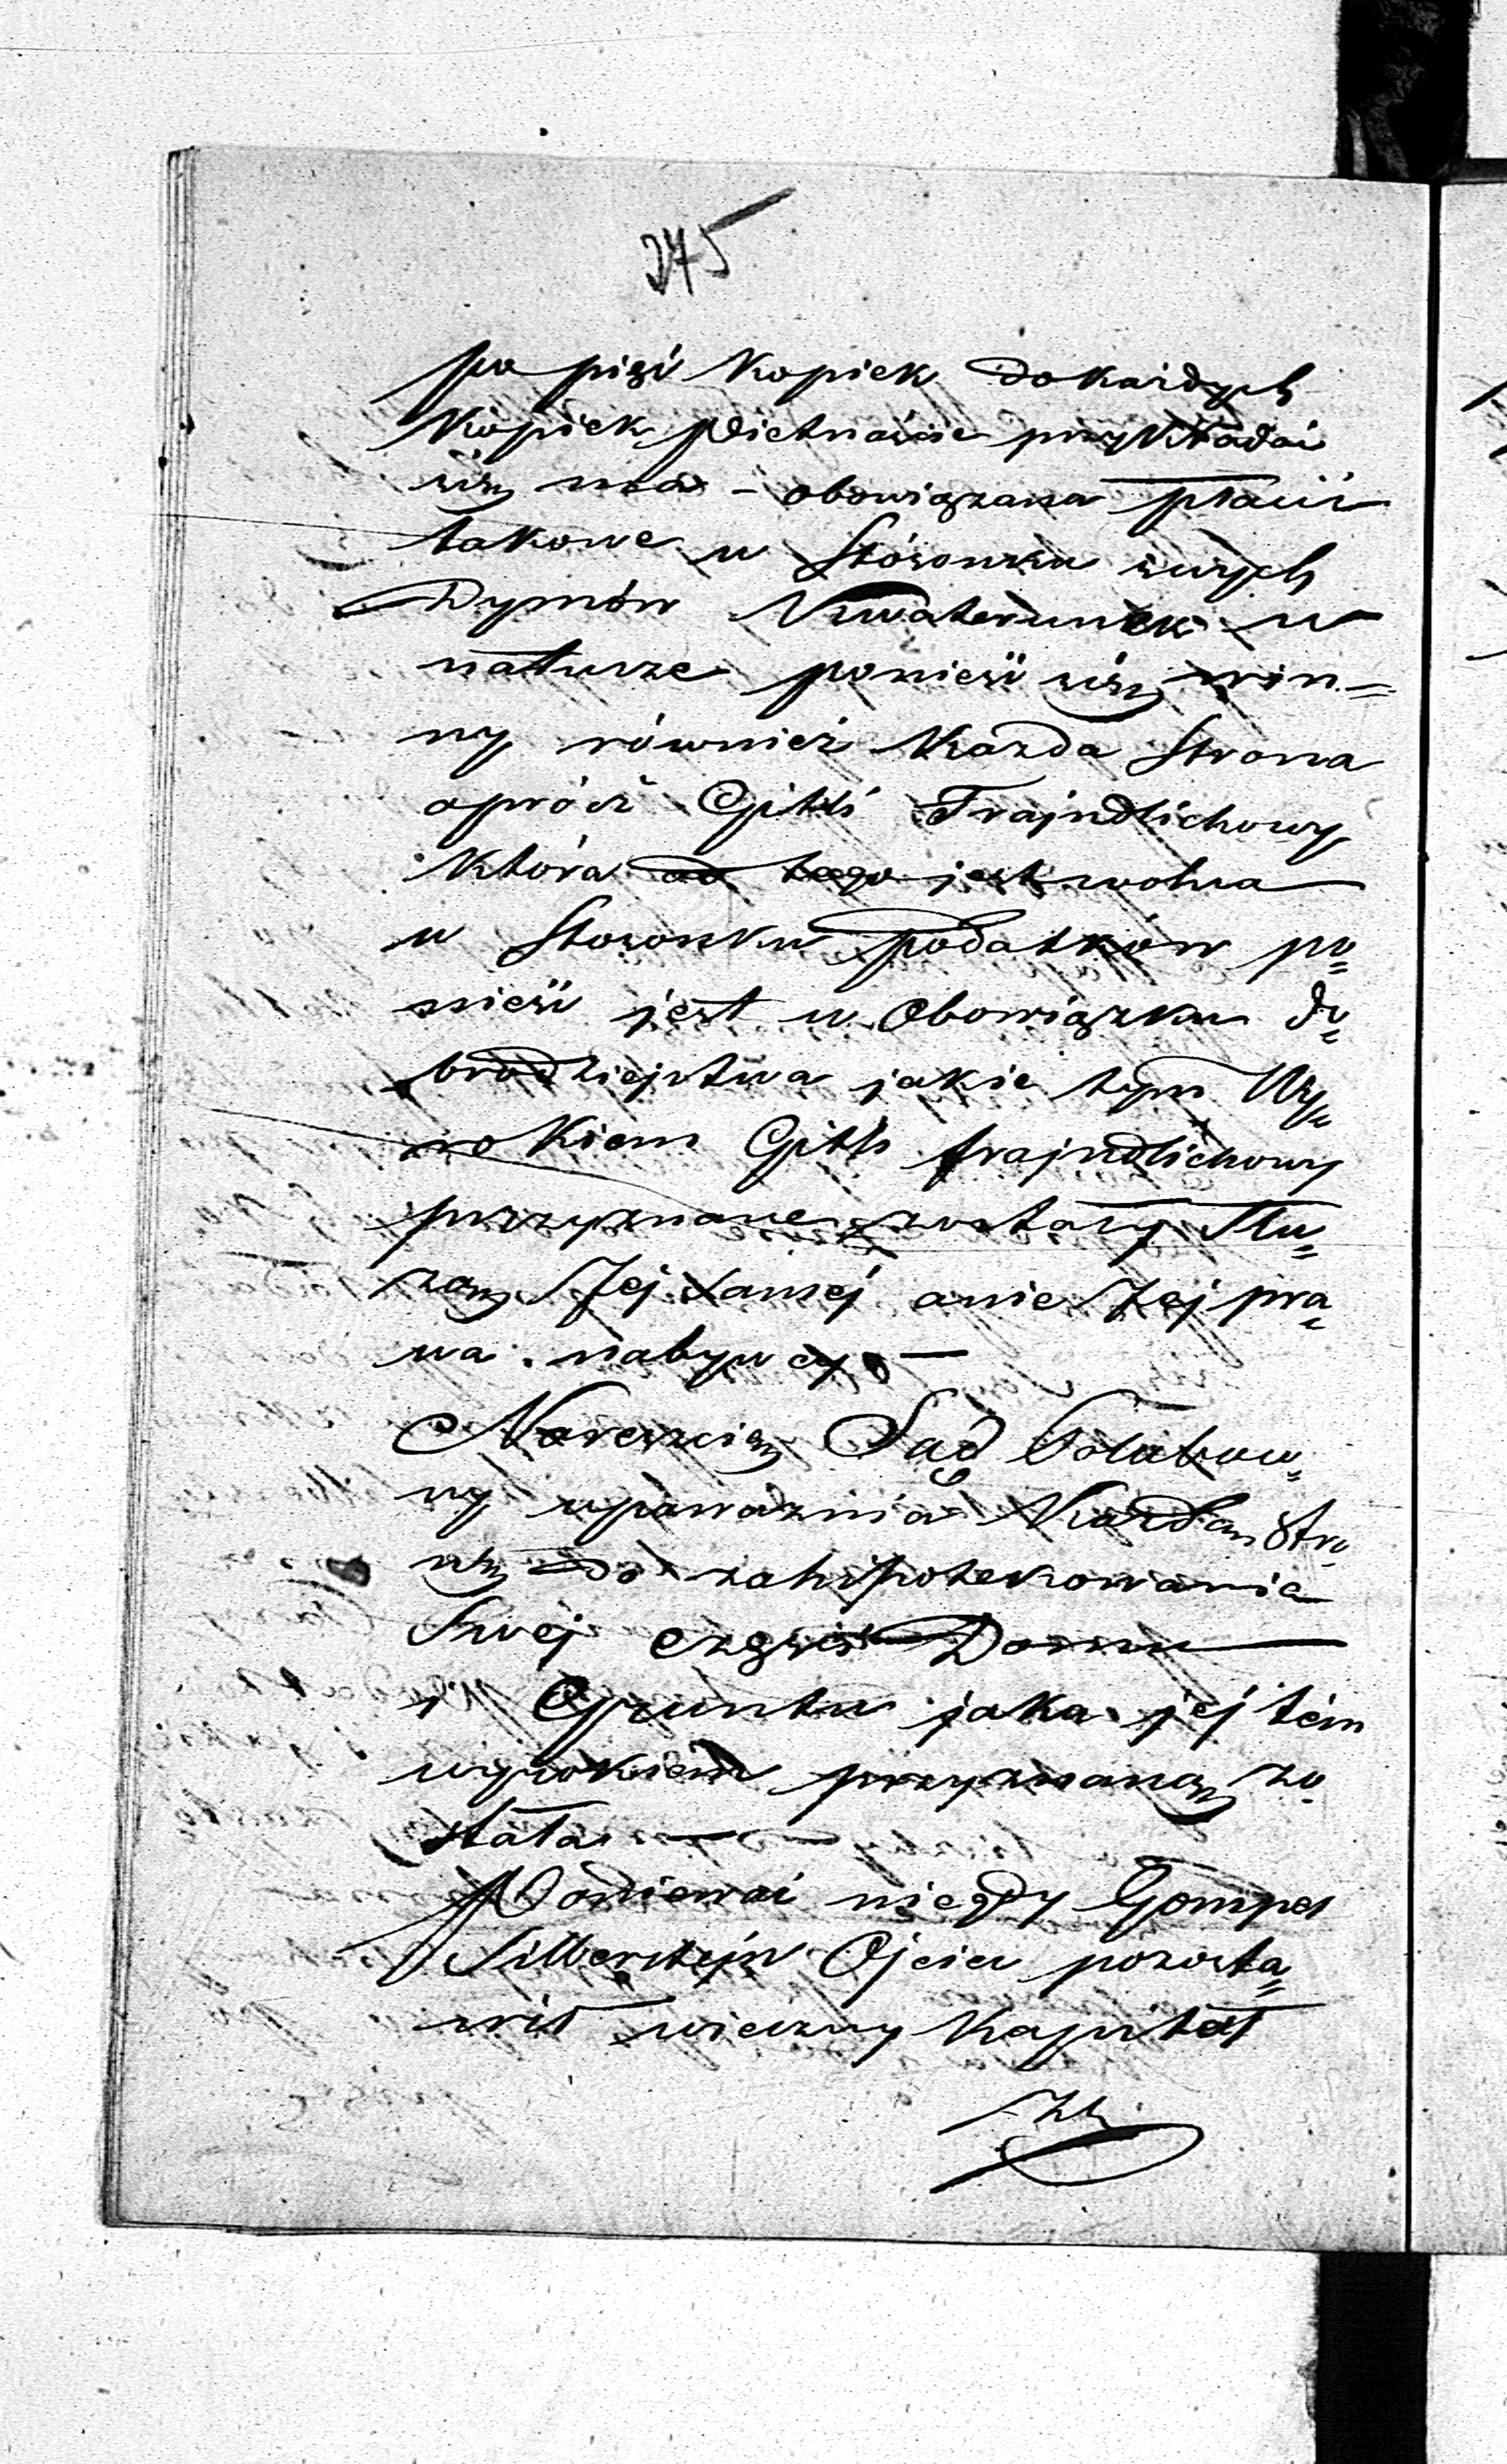 275
po pięć Kopiek do Każdych
Kopiek Pietnaście przykładać
się ma – obowiązana płacić
takowe w Stósonku swych
Dymów Kwaterunek w
naturze ponieść się win=
ny również Każda Strona
oprócz Gitli Frajndlichowy
Która od tego jest wolna
w Stosonku podatków po=
nieść jest w Obowiązku do=
brodziejstwa jakie tym Wy=
rokiem Gitli frajndlichowy
przyznane zostały Słu=
żą Jej samej a nie Jej pra=
wa nabywcy. —
Nareszcie Sąd Polubow=
ny upoważnia Każdą Stro=
nę do zahipotekowania
Swej części Domu —
i Gruntu jaka jej tém
wyrokiem przyznaną zo=
stała — —
Ponieważ niegdy Gompel
Silbersztejn Ojciec pozosta=
wił wieczny Kapitał